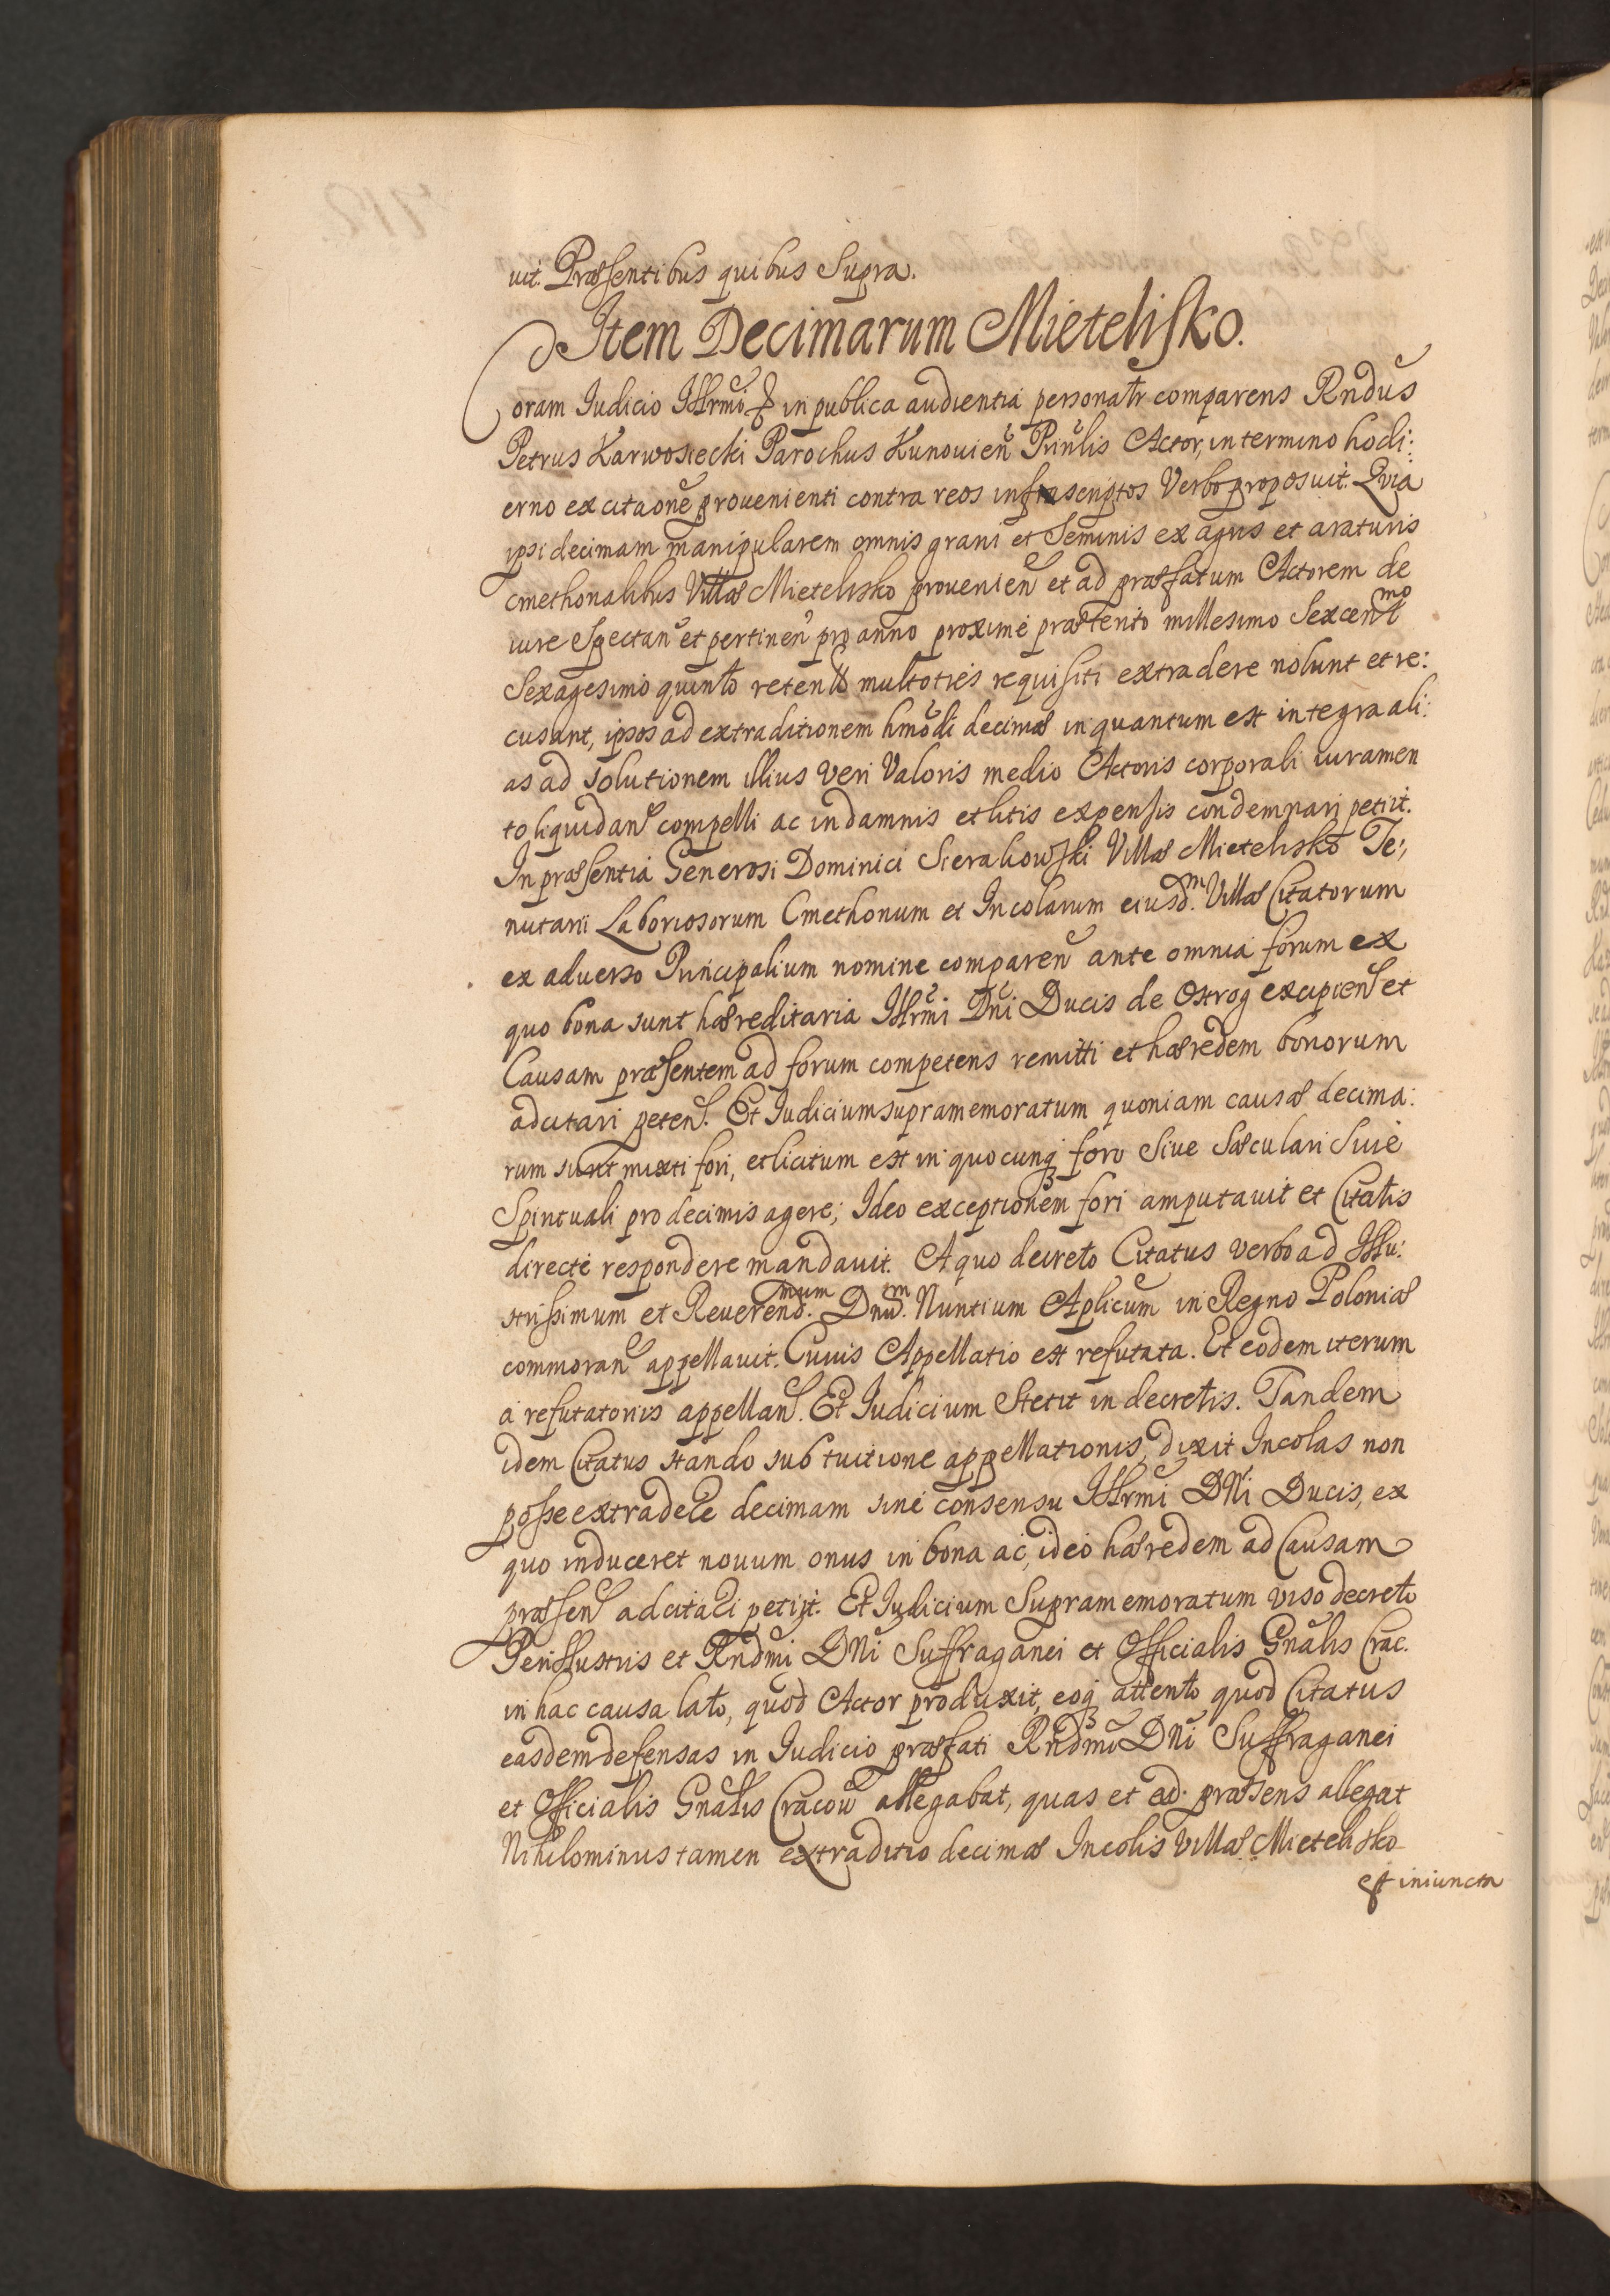 uit. Præsentibus quibus Supra.
Item Decimarum Mietelisko.
Coram Iudicio Illrmi & in publica audientia personalr comparens Rndus
Petrus Karwosiecki Parochus Kunouien Prinlis Actor, in termino hodi:
erno ex citaone prouenienti contra reos infrascriptos Verbo proposuit. Quia
ipsi decimam manipularem omnis grani et Seminis ex agris et araturis
cmethonalibus Villæ Mietelisko prouenien et ad præfatum Actorem de
iure Spectan et pertinen pro anno proxime præterito millesimo Sexcentmo
Sexagesimo quinto retent multoties requisiti extradere nolunt et re:
cusant, ipsos ad extraditionem hmodi decimæ in quantum est integra ali:
as ad solutionem illius veri Valoris medio Actoris corporali iuramen
to liquidan compelli ac in damnis et litis expensis condemnari petiit.
In præsentia Generosi Dominici Sierakowski Villæ Mietelisko Te:
nutarii Laboriosorum Cmethonum et Incolarum eiusdm. Villæ Citatorum
ex aduerso Principalium nomine comparen ante omnia forum ex
quo bona sunt hæreditaria Illrmi Dni Ducis de Ostrog excipien et
Causam præsentem ad forum competens remitti et hæredem bonorum
adcitari peten. Et Iudicium supramemoratum quoniam causæ decima:
rum sunt mixti fori, et licitum est in quocunq foro Siue Sæculari Siue
Spirituali pro decimis agere; Ideo exceptionem fori amputauit et Citatis
directe respondere mandauit. A quo decreto Citatus verbo ad Illu:
strissimum et Reuerendmum. Dnum. Nuntium Aplicum in Regno Poloniæ
commoran appellauit. Cuius Appellatio est refutata. Et eodem iterum
a refutatoriis appellan. Et Iudicium Stetit in decretis. Tandem
idem Citatus stando sub tuitione appellationis, dixit Incolas non
posse extradere decimam sine consensu Illrmi DNi Ducis, ex
quo induceret nouum onus in bona ac, ideo hæredem ad Causam
præsen adcitari petijt. Et Iudicium Supramemoratum viso decreto
Perillustris et Rndmi DNi Suffraganei et Officialis Gnalis Crac.
in hac causa lato, quod Actor produxit, eoq attento quod Citatus
easdem defensas in Iudicio præfati Rndmi DNi Suffraganei
et Officialis Gnalis Cracou allegabat, quas et ad præsens allegat
Nihilominus tamen extraditio decimæ Incolis Villæ Mietelisko
est iniuncta